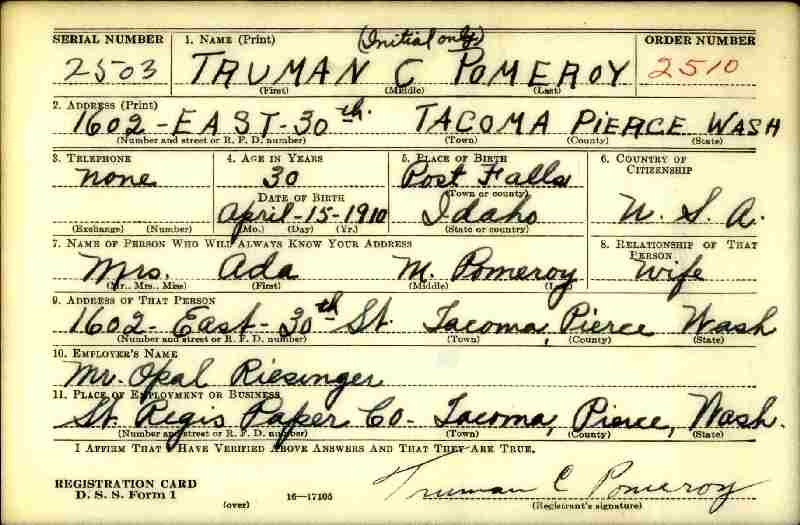 (Initial only)
SERIAL NUMBER 1. NAME (Print) ORDER NUMBER
2503 TRUMAN C POMEROY 2510
(First) (Middle) (Last)
2. ADDRESS (Print)
1602 - EAST - 30th. TACOMA PIERCE WASH
(Number and street or R. F. D. number) (Town) (County) (State)
3. TELEPHONE 4. AGE IN YEARS 5. PLACE OF BIRTH 6. COUNTRY OF CITIZENSHIP
none 30 Post Falls
(Town or county)
DATE OF BIRTH
April-15-1910 Idaho U. S. A.
(Exchange) (Number) (Mo.) (Day) (Yr.) (State or country)
7. NAME OF PERSON WHO WILL ALWAYS KNOW YOUR ADDRESS 8. RELATIONSHIP OF THAT PERSON
Mrs. Ada M. Pomeroy Wife
(Mr., Mrs., Miss) (First) (Middle) (Last)
9. ADDRESS OF THAT PERSON
1602 - East - 30th St. Tacoma, Pierce Wash
(Number and street or R. F. D. number) (Town) (County) (State)
10. EMPLOYER'S NAME
Mr. Opal Riesinger
11. PLACE OF EMPLOYMENT OR BUSINESS
St. Regis Paper Co - Tacoma, Pierce, Wash.
(Number and street or R. F. D. number) (Town) (County) (State)
I AFFIRM THAT I HAVE VERIFIED ABOVE ANSWERS AND THAT THEY ARE TRUE.
REGISTRATION CARD
D. S. S. Form 1 16—17105 Truman C Pomeroy
(over) (Registrant's signature)